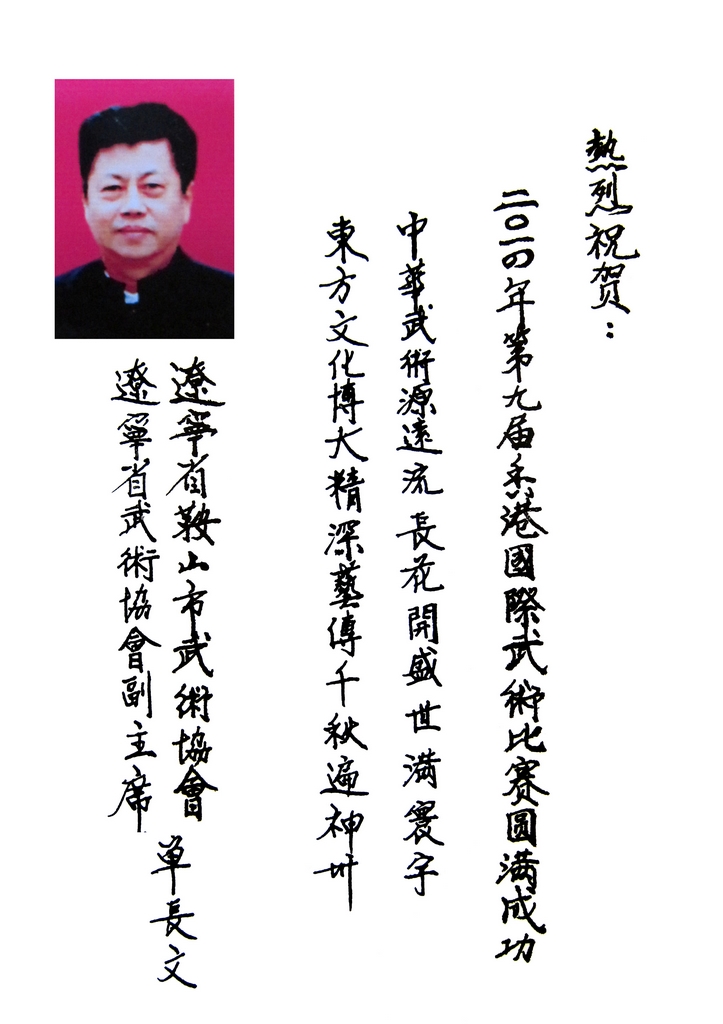 熱烈祝贺：
二〇一四年第九届香港國際武術比赛圆满成功
中華武術源遠流長花開盛世满寰宇
東方文化博大精深藝傳千秋遍神州
遼寧省鞍山市武術協會
遼寧省武術協會副主席
单長文